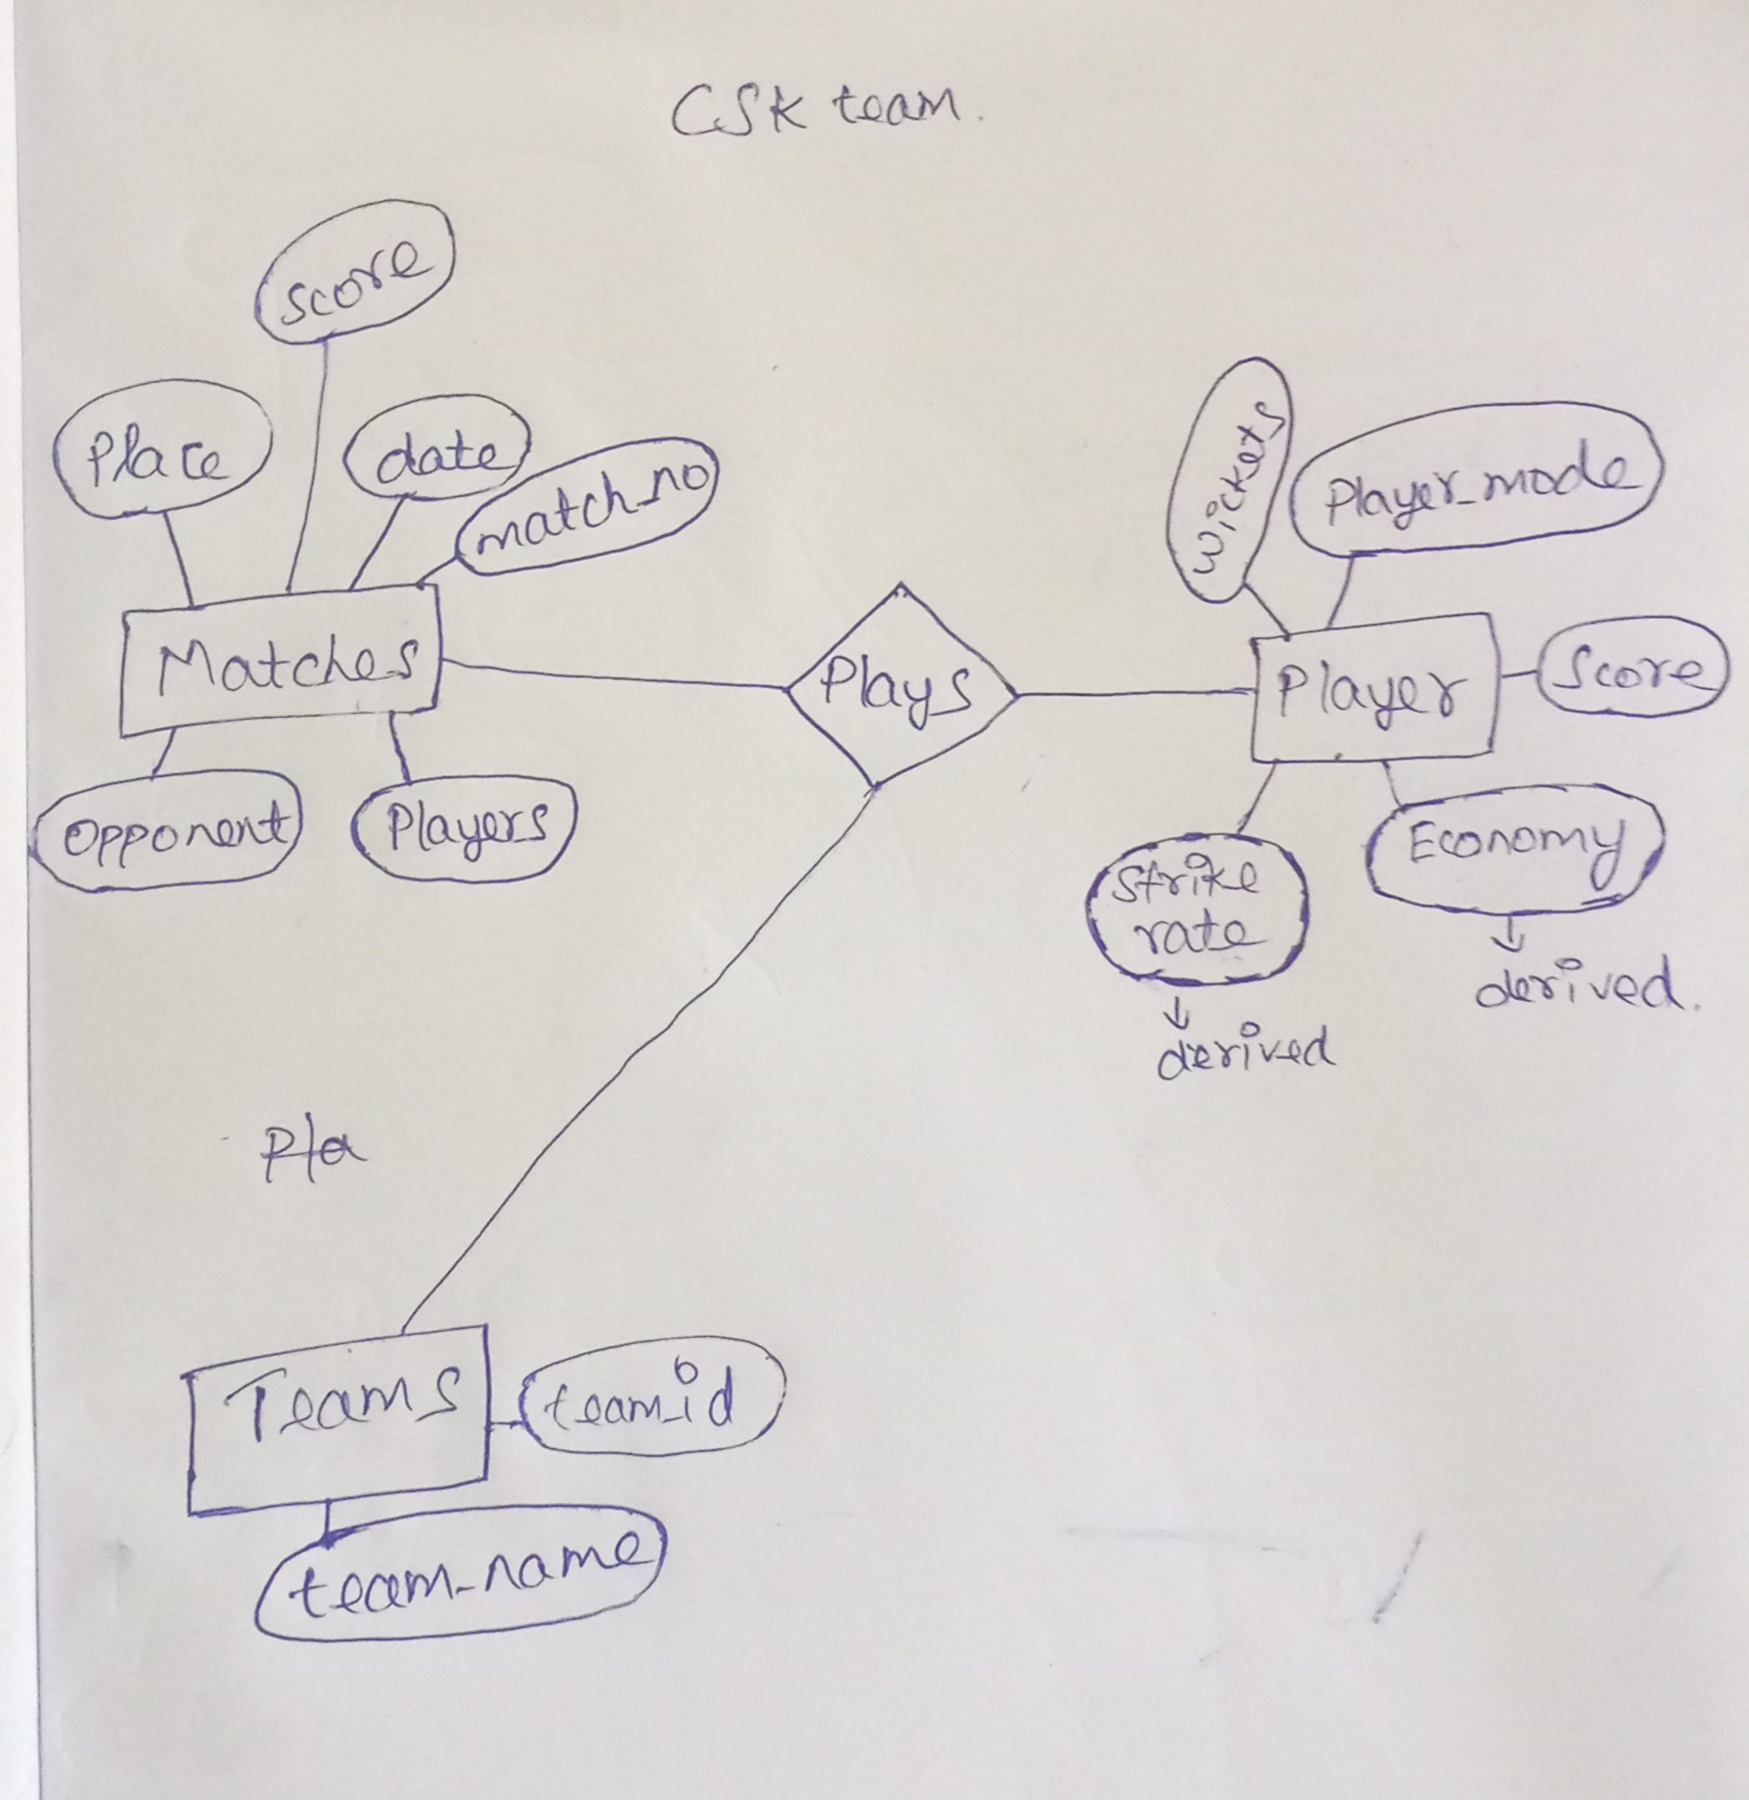 CSK team.
Score
Place
date
match_no
Matches
Opponent
Players
Plays
Wickets
Player_mode
Player
Score
Strike
rate
derived
Economy
derived.
Pla
Teams
team_id
team_name